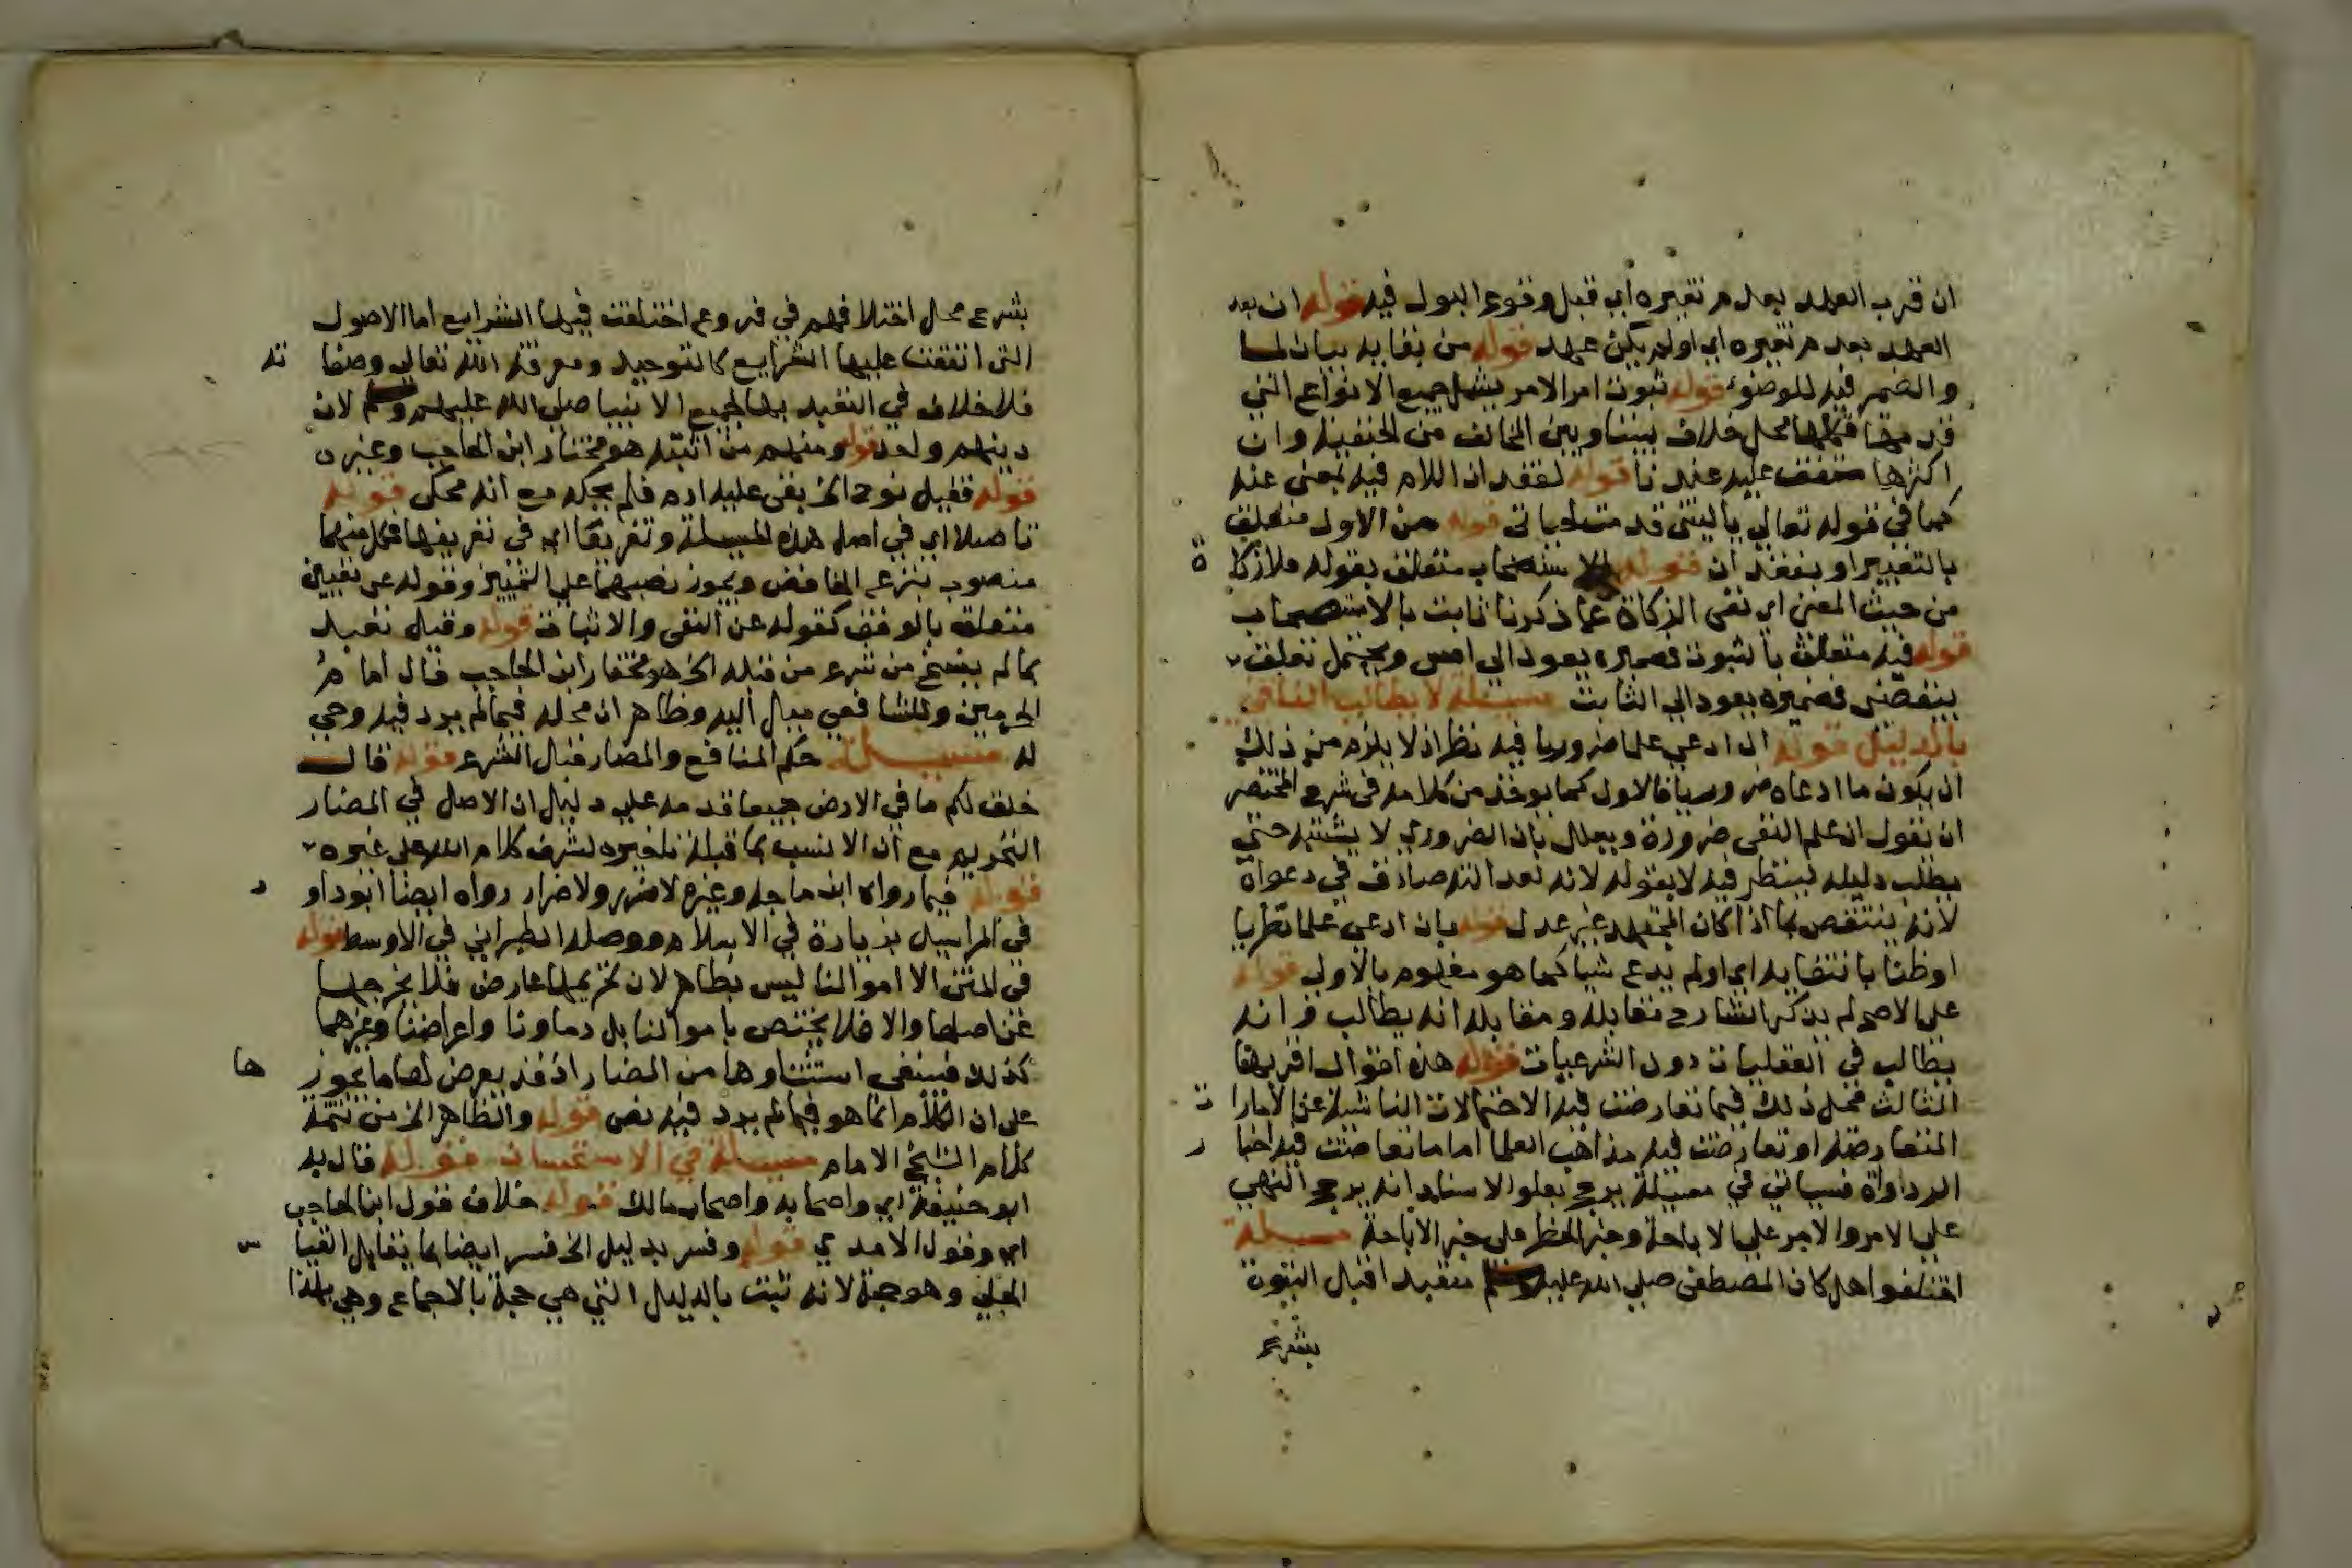 ان قرب العهد بعدم تغيره اي قبل وقوع البول فيه قوله ان بعد
العهد بعدم تغيره اي اولم يكن عهد قوله من بقايه بيان لما
والضمير فيه للوضوء قوله ثبوت امر الامر يشمل جميع الانواع التي
قدمها فكلها محل خلاف بيننا وبين المخالف من الحنفية وان
اكثرها متفق عليه عندنا قوله لفقد ان اللام فيه بمعنى عند
كما في قوله تعالي يا ليتني قدمت لحياتي قوله من الاول متعلق
بالتغيير او بفقد ان قوله الاستصحاب متعلق بقوله فلا زكاة
من حيث المعنى اي نفى الزكاة عما ذكرنا ثابت بالاستصحاب
قوله فيه متعلق بالثبوت فضميره يعود الي امس ويحتمل تعلقه
بينقضى فضميره يعود الي الثابت مسئلة لا يطالب النافي
بالدليل قوله ان ادعي علما ضروريا فيه نظر اذ لا يلزم من ذلك
ان يكون ما ادعاه ضروريا فالاول كما يوخذ من كلامه في شرح المختصر
ان نقول ان علم النفى ضرورة ويعلل بان الضروري لا يشتبه حتي
يطلب دليله لينظر فيه لا بقوله لانه لعدالته صادق في دعواه
لانه ينتقض بما اذا كان المجتهد غير عدل قوله بان ادعى علما نظريا
اوظنا بانتفايه اي اولم يدع شيا كما هو مفهوم بالاولى قوله
على الاصح لم يذكر الشارح مقابله ومقابله انه يطالب وانه
يطالب في العقليات دون الشرعيات قوله هذه اقوال اقربها
الثالث محل ذلك فيما تعارضت فيه الاحتمالات الناشية عن الامارات
المتعارضة او تعارضت فيه مذاهب العلما اما ما تعارضت فيه اخبار
الرواة فسياتي في مسئلة يرجح بعلو الاسناد انه يرجح النهي
على الامر والامر على الاباحة وخبر الحظر على خبر الاباحة مسئلة
اختلفوا هل كان المصطفى صلى الله عليه وسلم متعبدا قبل النبوة
بشرع
بشرع محل اختلافهم في فروع اختلفت فيها الشرايع اما الاصول
التى اتفقت عليها الشرايع كالتوحيد ومعرفة الله تعالي وصفاته
فلا خلاف في التعبد بها لجميع الانبيا صلى الله عليهم وسلم لان
دينهم واحد قوله ومنهم من اثبته هو مختار ابن الحاجب وغيره
قوله فقيل نوح الخ بقى عليه ادم فلم يحكه مع انه محكى قوله
تاصيلا اي في اصل هذه المسئلة وتفريعا اي في تفريعها فكل منهما
منصوب بنزع الخافض ويجوز نصبهما على التمييز وقوله عن تعيين
متعلق بالوقف كقوله عن النفى والاثبات قوله وقيل تعبد
بما لم ينسخ من شرع من قبله الخ هو مختار ابن الحاجب قال امام
الحرمين وللشافعي ميل اليه وظاهر ان محله فيما لم يرد فيه وحي
له مسئلة حكم المنافع والمضار قبل الشرع قوله قال
خلق لكم ما في الارض جميعا قدمه على دليل ان الاصل في المضار
التحريم مع ان الانسب بما قبله تاخيره لشرف كلام الله على غيره
قوله فيما رواه ابن ماجه وغيره لا ضرر ولا ضرار رواه ايضا ابو داود
في المراسيل بزيادة في الاسلام ووصله الطبراني في الاوسط قوله
في المتن الا اموالنا ليس بظاهر لان تحريمها عارض فلا يخرجها
عن اصلها والا فلا يختص باموالنا بل دماونا واعراضنا وغيرهما
كذلك فينبغى استثناوها من المضار اذ قد يعرض لها ما يجوزها
على ان الكلام انما هو فيما لم يرد فيه نص قوله والظاهر الخ من تتمة
كلام الشيخ الامام مسئلة في الاستحسان قوله قال به
ابو حنيفة اي واصحابه واصحاب مالك قوله خلاف قول ابن الحاجب
اي وقول الامدي قوله وفسر بدليل الخ فسر ايضا بما يقابل القياس
الجلي وهو حجة لانه ثبت بالدليل التي هي حجة بالاجماع وهي بهذا